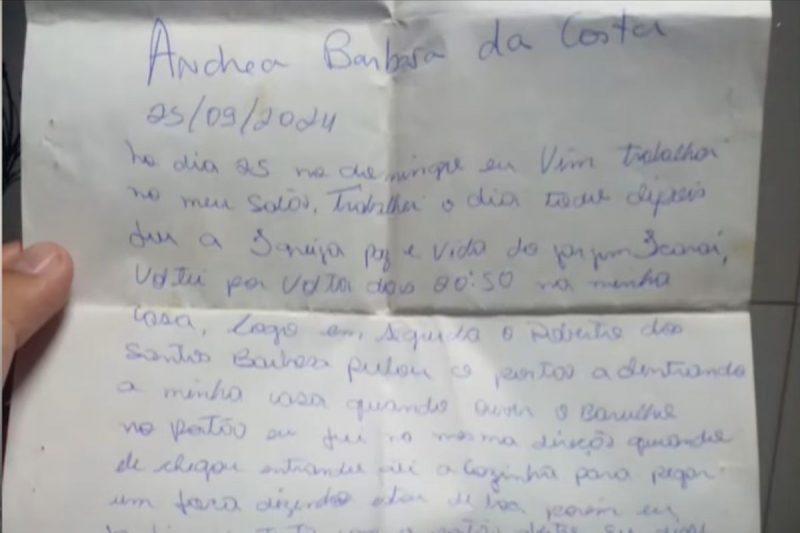 Andrea Barbosa da Costa
25/09/2024
no dia 25 no domingo eu Vim trabalhar
no meu salão, Trabalhei o dia todo depois
fui a Igreja paz e Vida do jardim Icaraí,
Voltei por Volta das 20:50 na minha
casa, logo em seguida o Roberto dos
Santos Barbosa pulou o portão adentrando
a minha casa quando ouvi o Barulho
no portão eu fui na mesma direção quando
ele chegou entrando até a Cozinha para pegar
um faca dizendo estar de boa porém eu